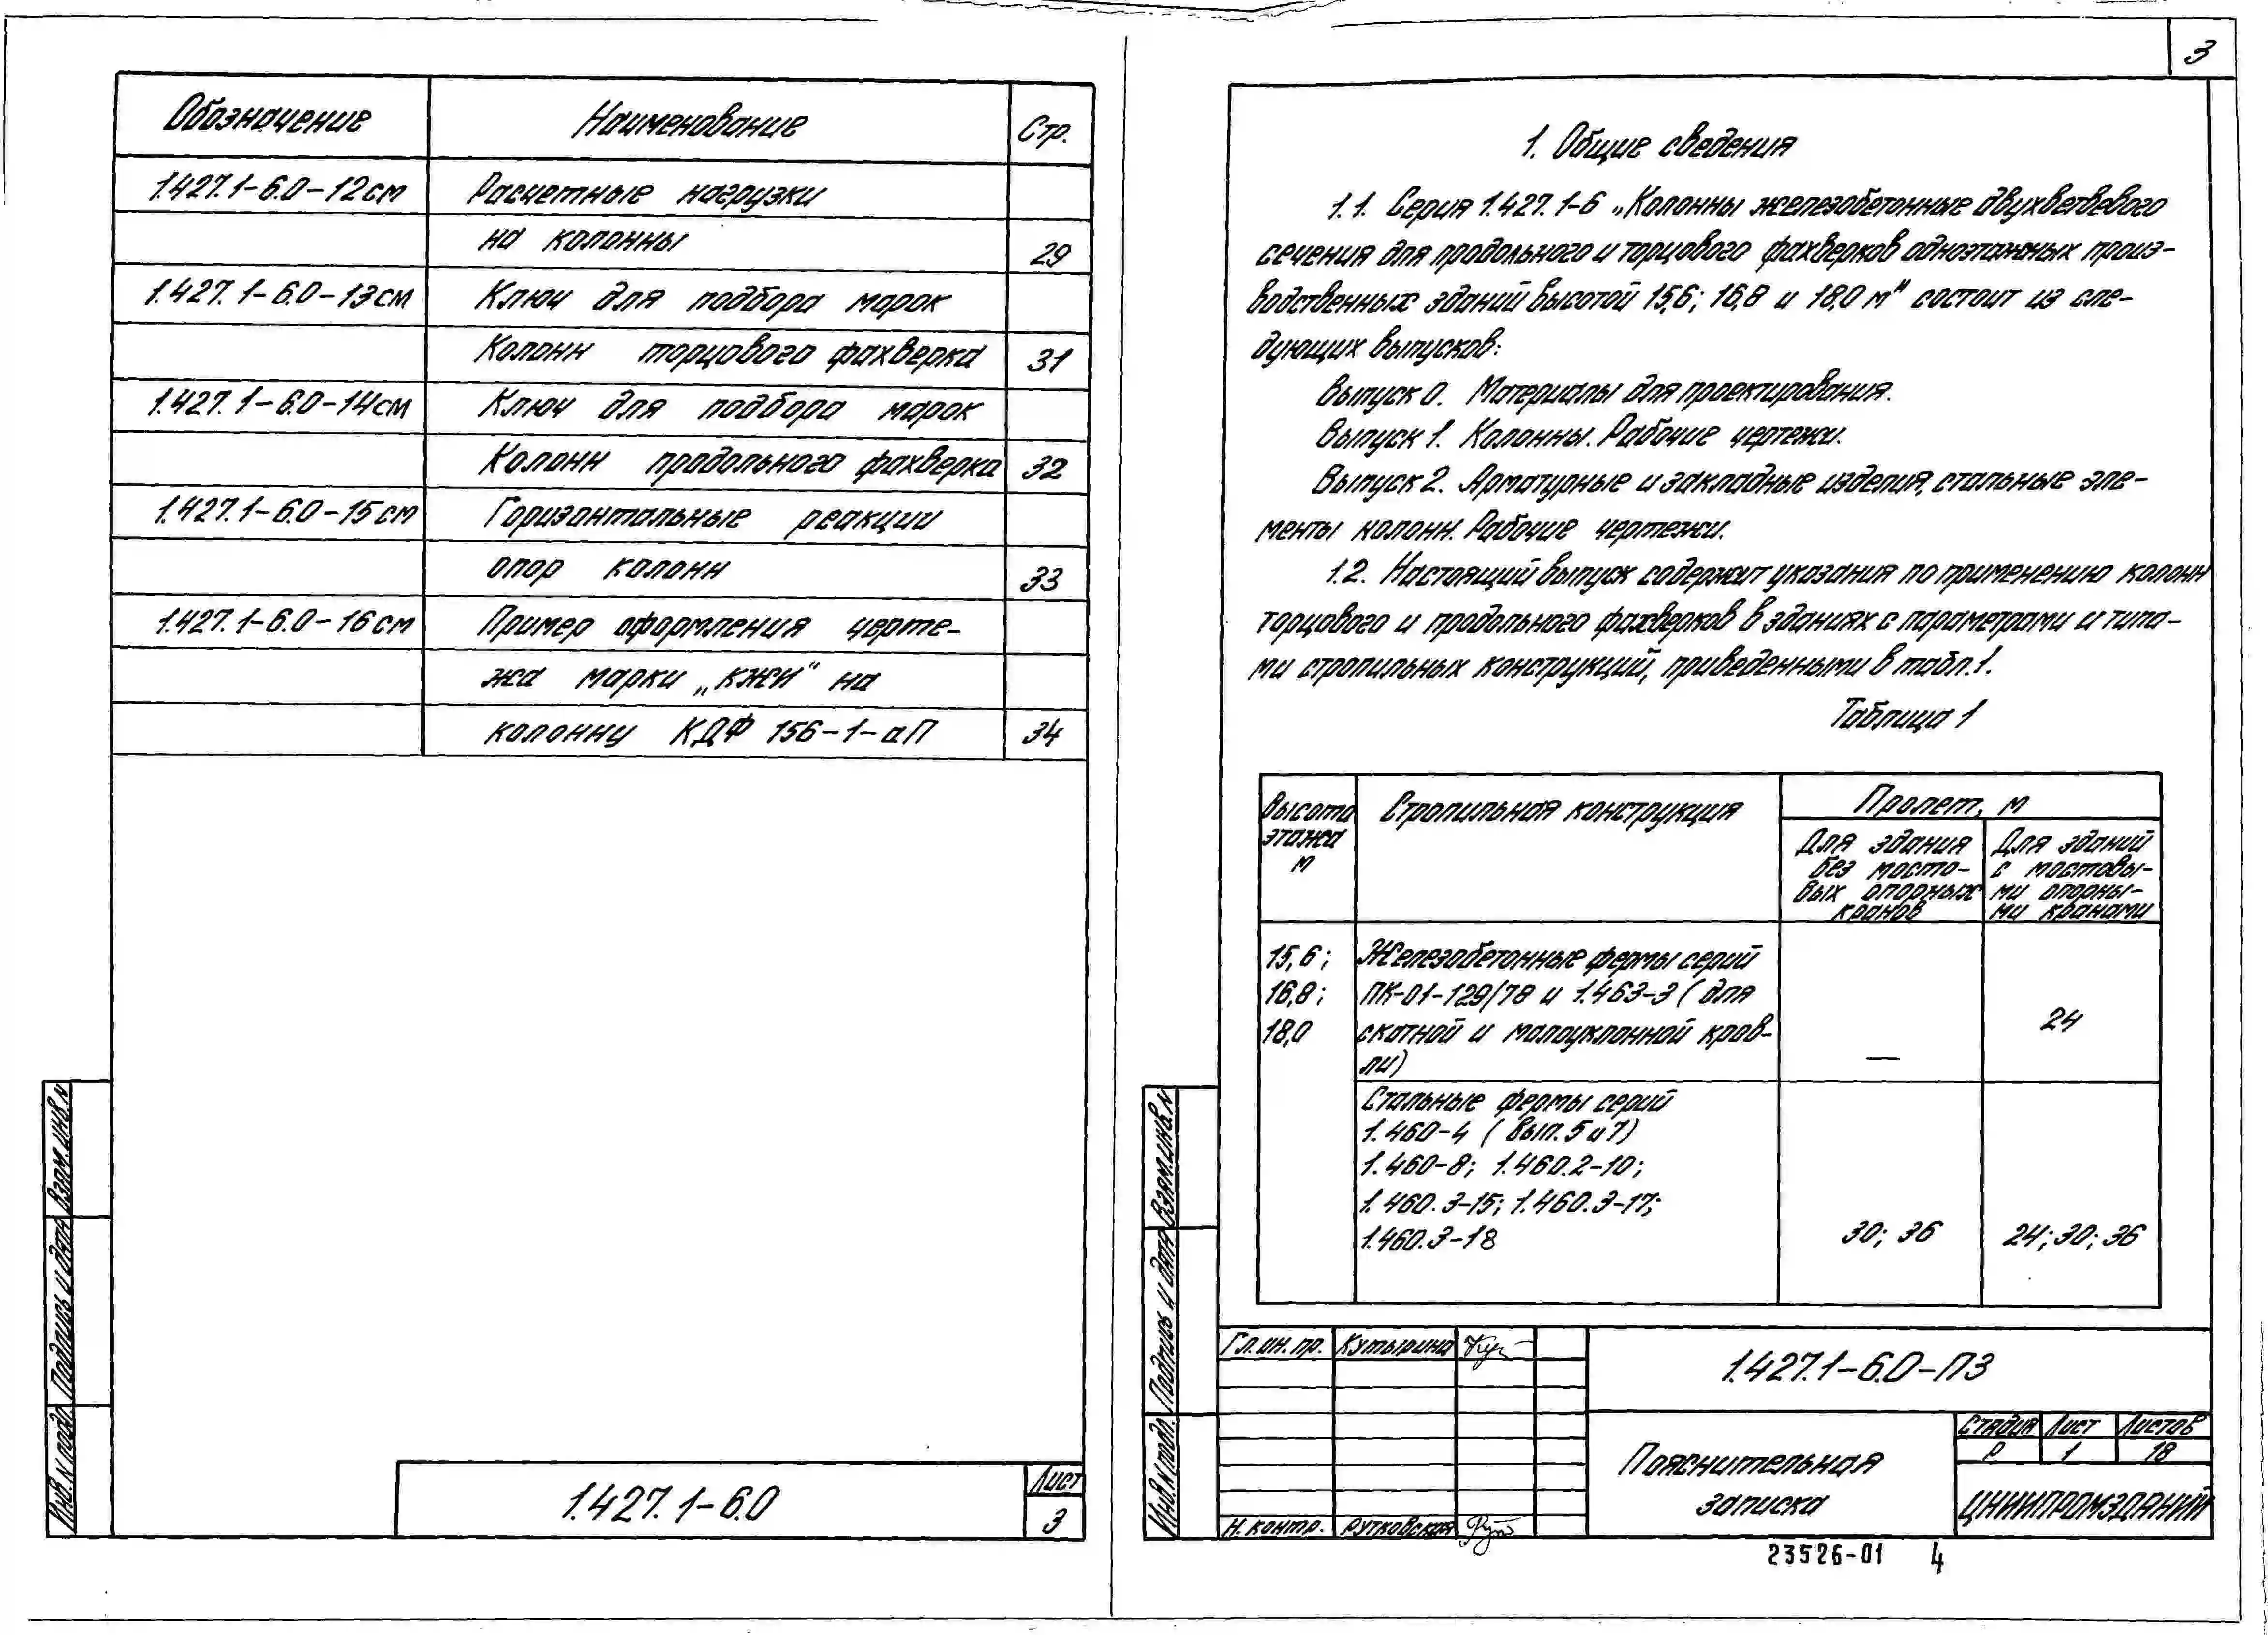 Обозначение Наименование Стр.
1.427.1-6.0-12см Расчетные нагрузки
на колонны 29
1.427.1-6.0-13см Ключ для подбора марок
Колонн торцового фахверка 31
1.427.1-6.0-14см Ключ для подбора марок
Колонн продольного фахверка 32
1.427.1-6.0-15см Горизонтальные реакции
опор колонн 33
1.427.1-6.0-16см Пример оформления черте-
жа марки „КЖИ" на
колонну КДФ 156-1-аП 34
Взам.инв.N
Подпись и дата
Инв.N подл.
1.427.1-6.0
Лист
3
3
1. Общие сведения
1.1. Серия 1.427.1-6 „Колонны железобетонные двухветвевого
сечения для продольного и торцового фахверков одноэтажных произ-
водственных зданий высотой 15,6; 16,8 и 18,0 м" состоит из сле-
дующих выпусков:
Выпуск 0. Материалы для проектирования.
Выпуск 1. Колонны. Рабочие чертежи.
Выпуск 2. Арматурные и закладные изделия, стальные эле-
менты колонн. Рабочие чертежи.
1.2. Настоящий выпуск содержит указания по применению колонн
торцового и продольного фахверков в зданиях с параметрами и типа-
ми стропильных конструкций, приведенными в табл.1.
Таблица 1
Высота
этажа
м
Стропильная конструкция
Пролет, м
Для здания
без мосто-
вых опорных
кранов
Для зданий
с мостовы-
ми опорны-
ми кранами
15,6;
16,8;
18,0
Железобетонные фермы серий
ПК-01-129/78 и 1.463-3 (для
скатной и малоуклонной кров-
ли)
—
24
Стальные фермы серий
1.460-4 (вып. 5 и 7)
1.460-8; 1.460.2-10;
1.460.3-15; 1.460.3-17;
1.460.3-18
30; 36
24; 30; 36
Взам.инв.N
Подпись и дата
Инв.N подл.
Гл.ин.пр. Кутырина Кут
Н.контр. Рутковская Рут
1.427.1-6.0-ПЗ
Пояснительная
записка
Стадия Лист Листов
Р 1 18
ЦНИИПРОМЗДАНИЙ
23526-01 4